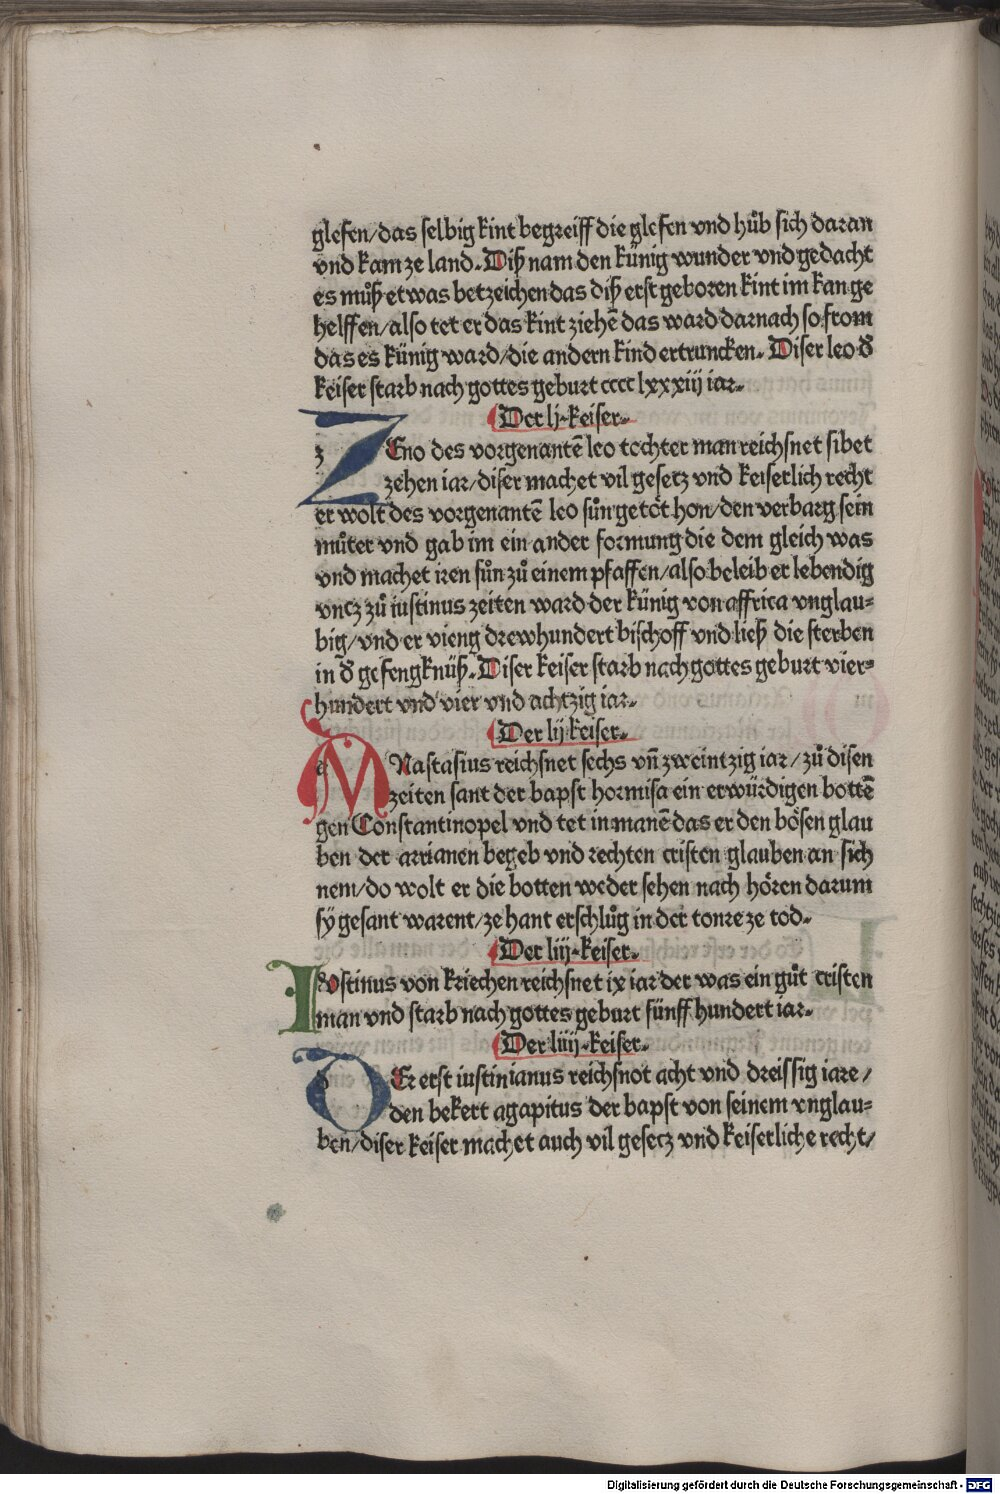 glefen/das selbig kint begreiff die glefen vnd hůb sich daran
vnd kam ze land. Diß nam den künig wunder vnd gedacht
es můß etwas betzeichen das diß erst geboren kint im kan ge
helffen/also tet er das kint ziehē das ward darnach so from
das es künig ward/die andern kind ertruncken. Diser leo đ
keiser starb nach gottes geburt cccc lxxxiij iar.
Der lj.keiser.
ZEno des vorgenantē leo tochter man reichsnet sibet
zehen iar/diser machet vil gesetz vnd keiserlich recht
er wolt des vorgenantē leo sůn getöt hon/den verbarg sein
můter vnd gab im ein ander formung die dem gleich was
vnd machet iren sůn zů einem pfaffen/also beleib er lebendig
vncz zů iustinus zeiten ward der künig von affrica vnglau=
big/vnd er vieng drewhundert bischoff vnd ließ die sterben
in đ gefengknüß. Diser keiser starb nach gottes geburt vier=
hundert vnd vier vnd achtzig iar.
Der lij keiser.
ANastasius reichsnet sechs vn̄ zweintzig iar/zů disen
zeiten sant der bapst hormisa ein erwürdigen bottē
gen Constantinopel vnd tet in manē das er den bösen glau
ben der arrianen begeb vnd rechten cristen glauben an sich
nem/do wolt er die botten weder sehen nach hören darum
sÿ gesant warent/ze hant erschlůg in der tonre ze tod.
Der liij.keiser.
IVstinus von kriechen reichsnet ix iar der was ein gůt cristen
man vnd starb nach gottes geburt fünff hundert iar.
Der liiij.keiser.
DEr erst iustinianus reichsnot acht vnd dreissig iare/
den bekert agapitus der bapst von seinem vnglau=
ben/diser keiser machet auch vil gesecz vnd keiserliche recht/
Digitalisierung gefördert durch die Deutsche Forschungsgemeinschaft - DFG